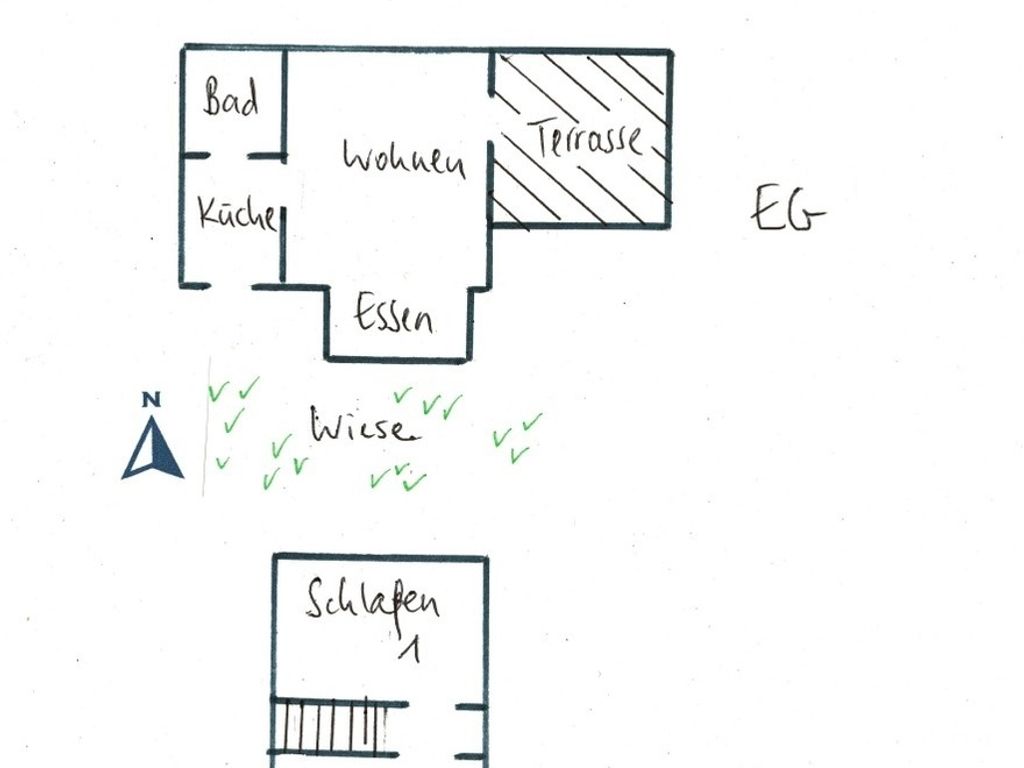 Bad
Wohnen
Terrasse
Küche
EG
Essen
N
Wiese
Schlafen
1